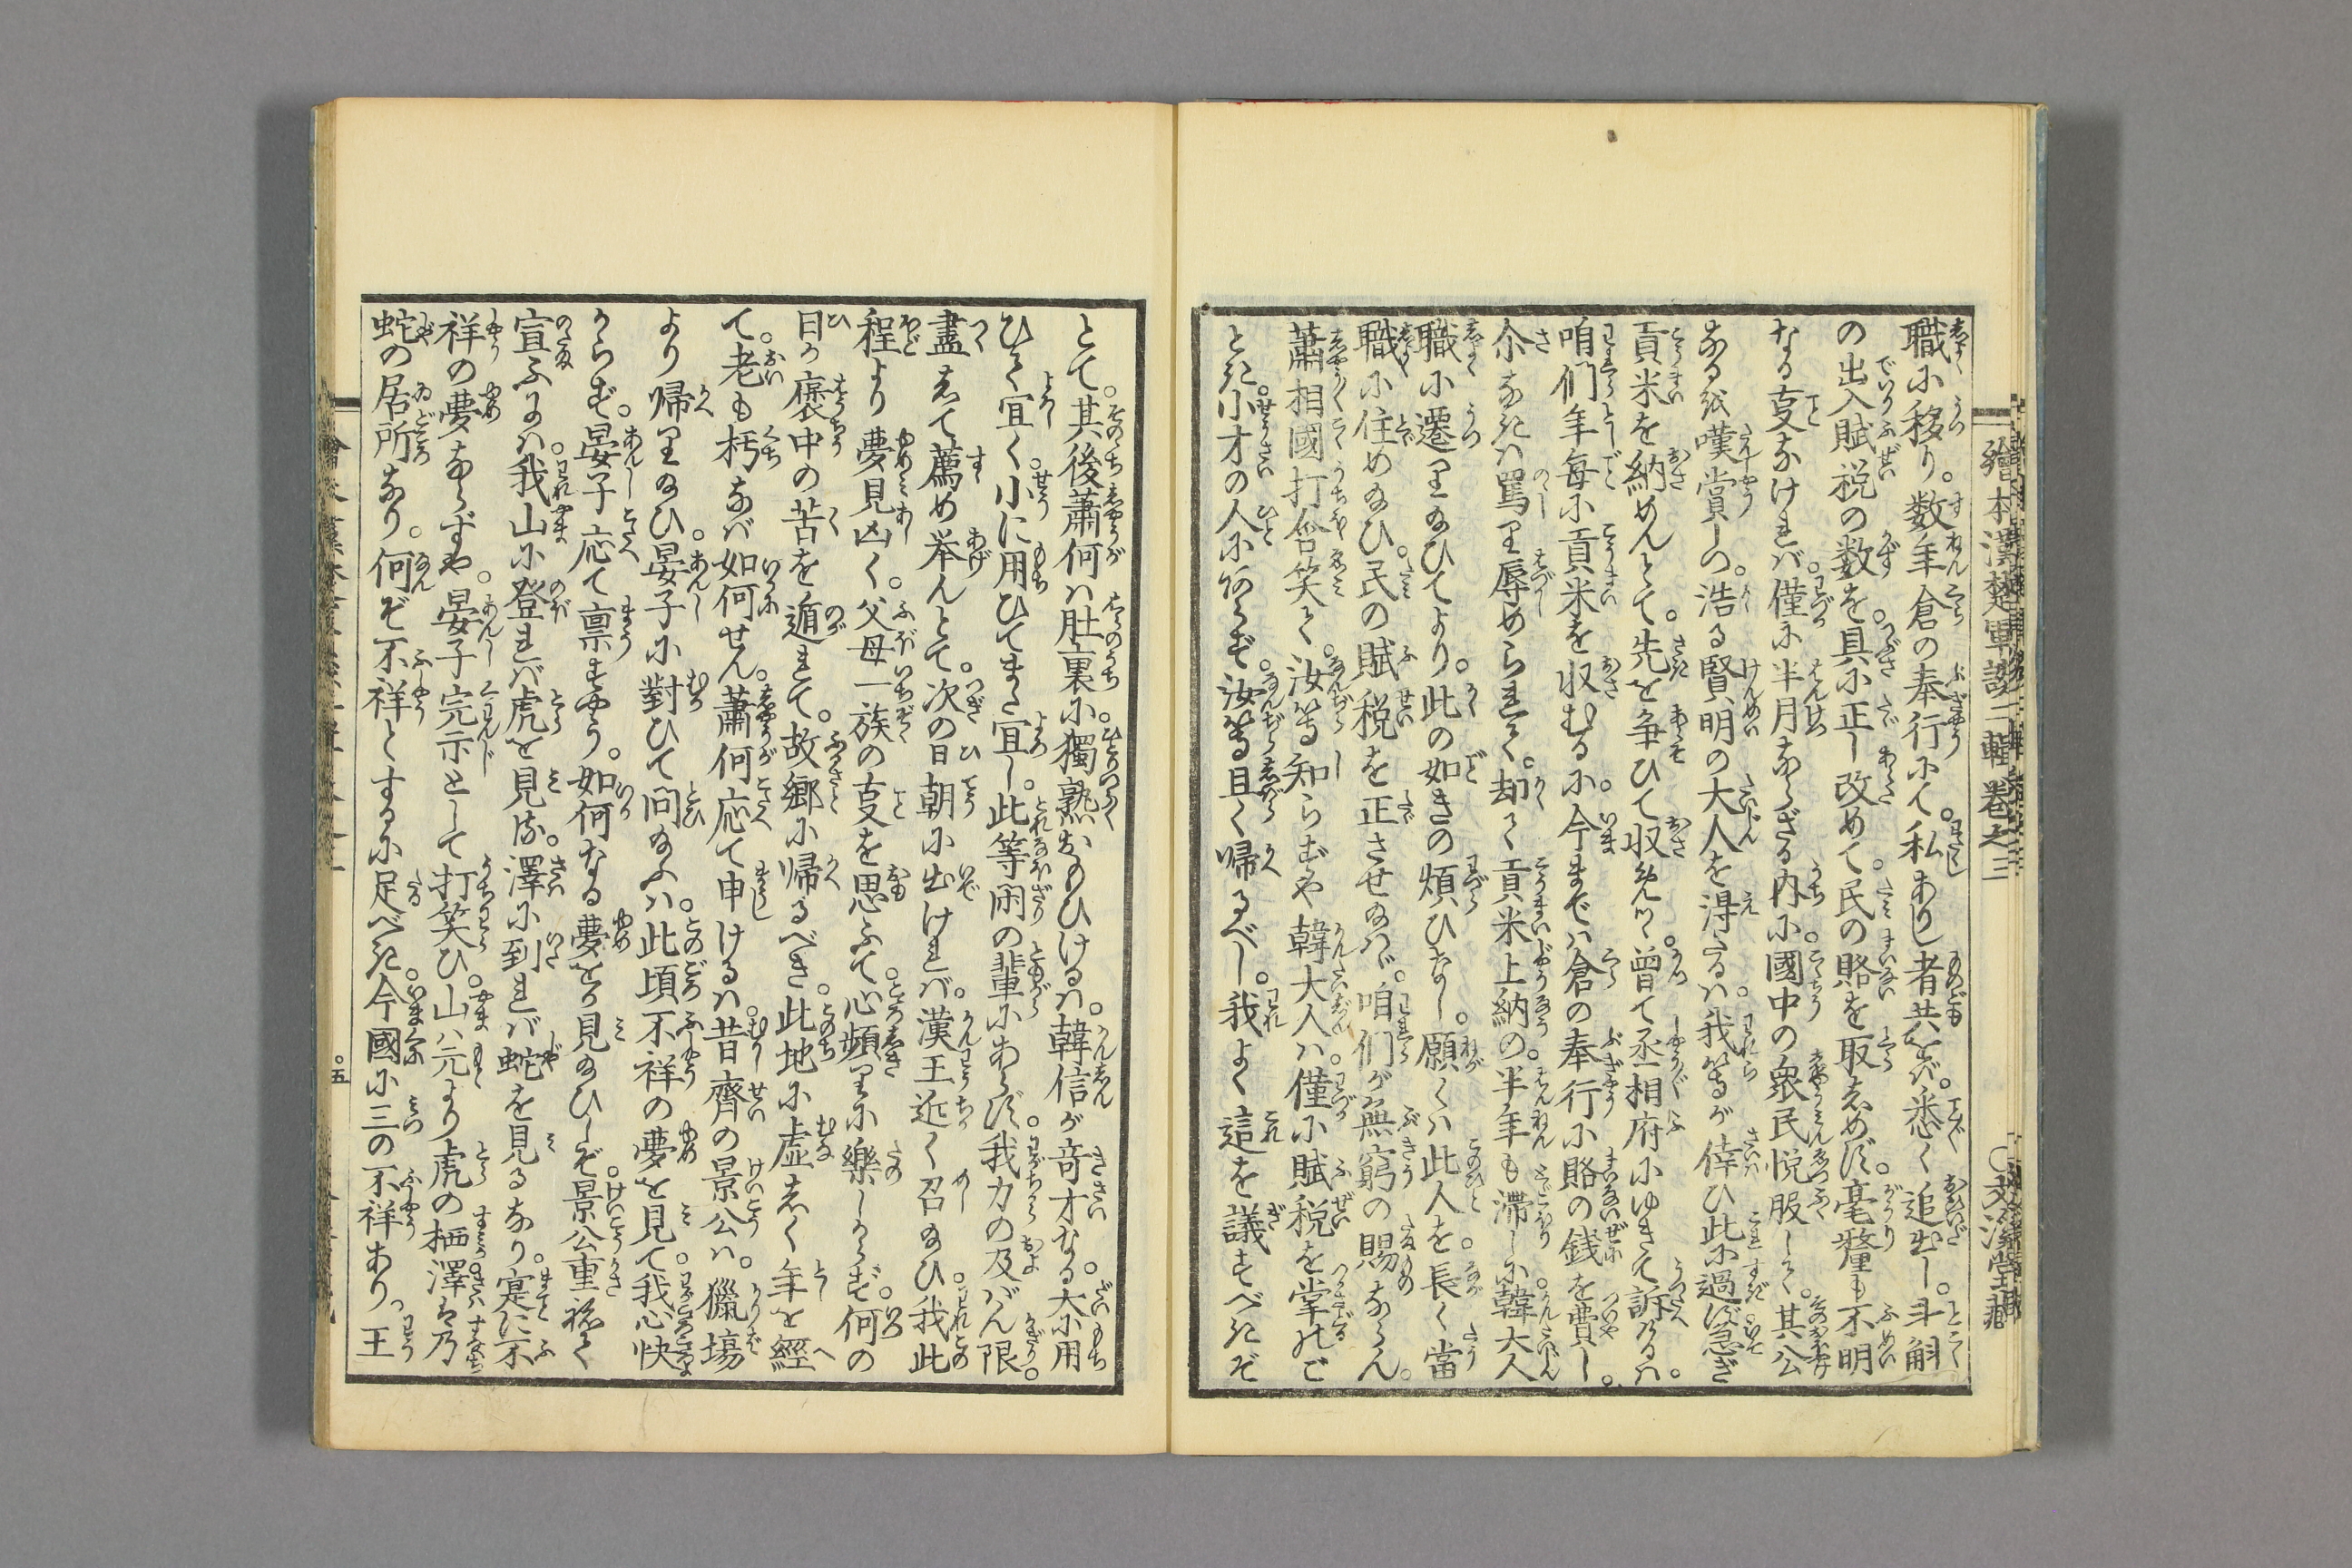 繪本漢楚軍談二輯卷之三　〇文溪堂藏
職に移り。数年倉の奉行にて。私ありし者共をば。悉く追出し。斗斛
の出入賦税の数を。具に正し改めて。民の賂を取しめず。毫釐も不明
なる事なければ。僅に半月ならざる内に。國中の衆民悦服して。其公
なるを嘆賞しつ。浩る賢明の大人を得たるは。我等が倖ひ此に過ば急ぎ
貢米を納めんとて。先を争ひて収めつゝ。曽て丞相府にゆきて訴けるは。
咱们年毎に貢米を収むるに。今までは倉の奉行に賂の銭を費し。
尒なきは罵り辱めらるゝ。却て貢米上納の半年も滞しに韓大人
職に遷り給ひてより。此の如きの煩ひなし。願くは此人を長く當
職に住め給ひ。民の賦税を正させ給はゞ。咱们が無窮の賜ならん。
蕭相國打含笑て。汝等知らずや韓大人は。僅に賦税を掌れど
とき。小才の人にあらず。汝等且く帰るべし。我よく這を議すべきぞ
とて。其後蕭何は肚裏に。獨熟おもひけるは。韓信が奇才なる。大に用
ひて宜く。小に用ひてまた宜し。此等閑の輩にあらず。我力の及ばん限。
盡して薦め挙んとて。次の日朝に出ければ。漢王近く召給ひ。我此
程より夢見凶く。父母一族の事を思ふて。心頻りに樂しからず。何の
日か褒中の苦を遁れて。故郷に帰るべき。此地に虚しく年を經
て。老も朽なば如何せん。蕭何応て申けるは。昔齊の景公は。獵場
より帰り給ひ。晏子に對ひて問給ふは。此頃不祥の夢を見て。我心快
からず。晏子応て禀すやう。如何なる夢をか見給ひしぞ。景公重ねて
宣ふには。我山に登れば虎を見。澤に到れば蛇を見るなり。寔に不
祥の夢ならずや。晏子完示として打笑ひ。山は元より虎の栖。澤は乃
蛇の居所なり。何ぞ不祥とするに足べき。今國に三の不祥あり。王
〇五